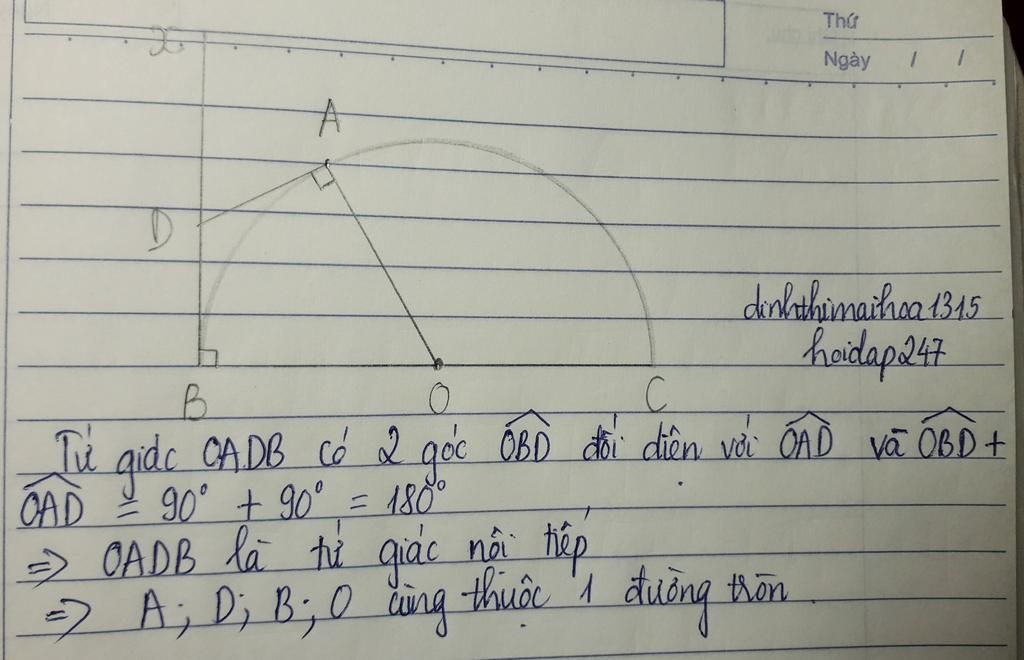 Thứ
Ngày / /
x
A
D
dinhthimaihoa1315
hoidap247
B O C
Tứ giác OADB có 2 góc OBD đối diện với OAD và OBD +
OAD = 90° + 90° = 180°
=> OADB là tứ giác nội tiếp
=> A; D; B; O cùng thuộc 1 đường tròn.